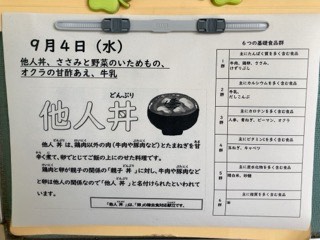 9月4日（水）
他人丼、ささみと野菜のいためもの、
オクラの甘酢あえ、牛乳
どんぶり
他人丼
他人丼は、鶏肉以外の肉（牛肉や豚肉など）とたまねぎを甘
辛く煮て、卵でとじてご飯の上にのせた料理です。
鶏肉と卵が親子の関係の「親子丼」に対し、牛肉や豚肉など
と卵は他人の関係なので「他人丼」と名付けられたといわれて
います。
６つの基礎食品群
1群
主にたんぱく質を多く含む食品
牛肉、鶏卵、ささみ、
2群
主にカルシウムを多く含む食品
牛乳、
だしこんぶ
3群
主にカロテンを多く含む食品
人参、青ねぎ、ピーマン、オクラ
4群
主にビタミンCを多く含む食品
玉ねぎ、キャベツ
5群
主に炭水化物を多く含む食品
精白米、砂糖
6群
主に脂質を多く含む食品